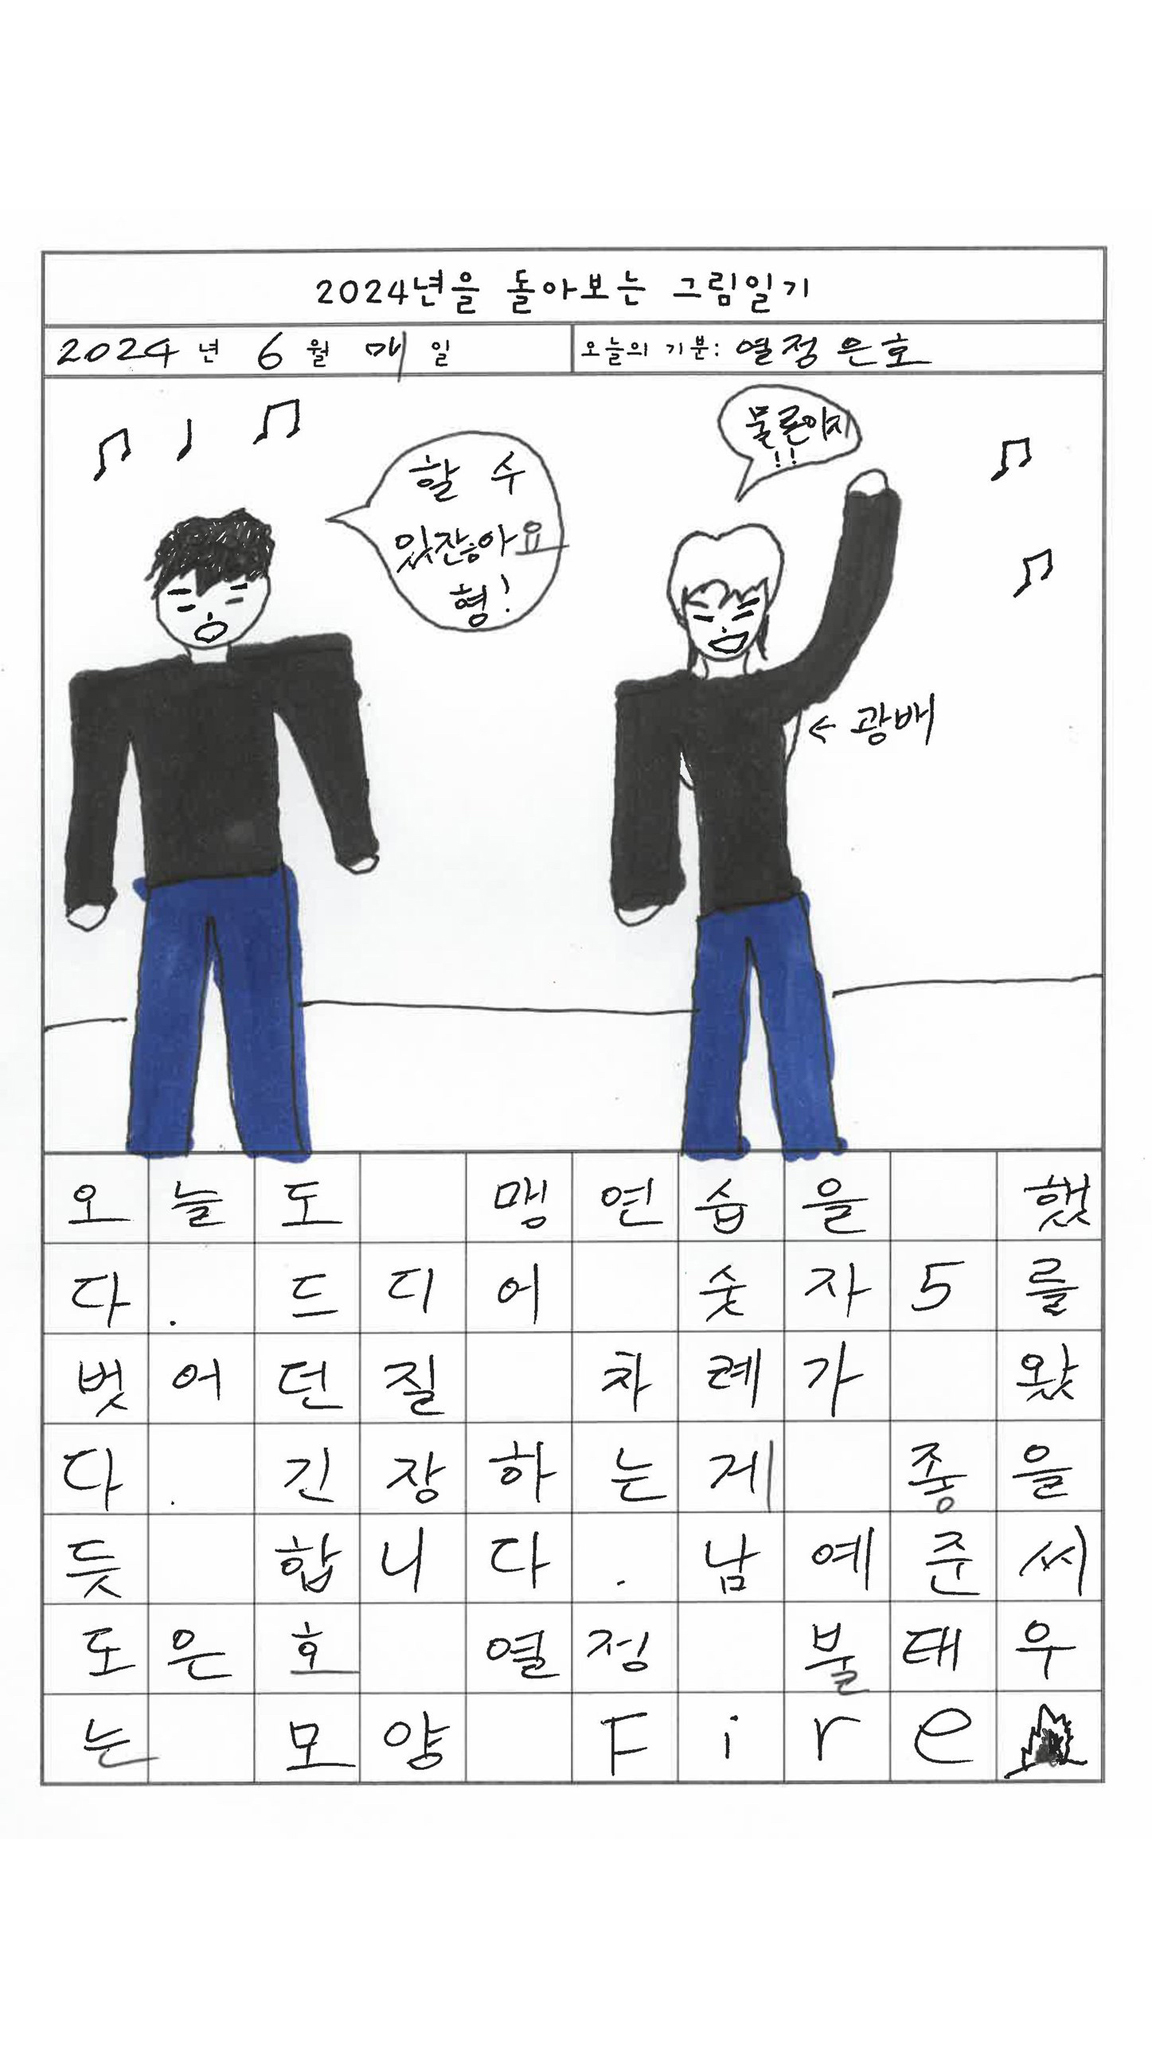 2024년을 돌아보는 그림일기
2024년 6월 매일 오늘의 기분: 열정 은호
할 수
있잖아요
형!
물론이지
!!
← 광배
오늘도 맹연습을 했
다. 드디어 숫자5를
벗어던질 차례가 왔
다. 긴장하는게 좋을
듯 합니다. 남예준씨
도은호 열정 불태우
는 모양 Fire